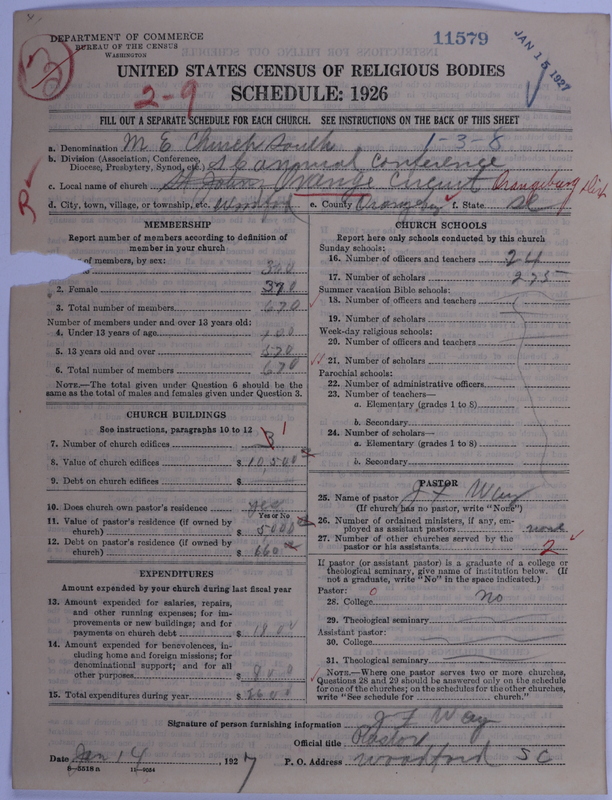 DEPARTMENT OF COMMERCE
BUREAU OF THE CENSUS
WASHINGTON
11579
JAN 15 1927
UNITED STATES CENSUS OF RELIGIOUS BODIES
2-9
SCHEDULE: 1926
FILL OUT A SEPARATE SCHEDULE FOR EACH CHURCH. SEE INSTRUCTIONS ON THE BACK OF THIS SHEET
a. Denomination M E Church South 1-3-8
b. Division (Association, Conference, Diocese, Presbytery, Synod, etc.) S C annual Conference
c. Local name of church St John Orange Circuit Orangeburg Dist
d. City, town, village, or township, etc. e. County Orangeburg f. State SC
MEMBERSHIP
Report number of members according to definition of member in your church
of members, by sex:
300
2. Female 370
3. Total number of members 670
Number of members under and over 13 years old:
4. Under 13 years of age 100
5. 13 years old and over 570
6. Total number of members 670
NOTE.—The total given under Question 6 should be the same as the total of males and females given under Question 3.
CHURCH BUILDINGS
See instructions, paragraphs 10 to 12
7. Number of church edifices 3 1
8. Value of church edifices $ 10,500
9. Debt on church edifices $
10. Does church own pastor's residence yes
Yes or No
11. Value of pastor's residence (if owned by church) $ 5000
12. Debt on pastor's residence (if owned by church) $ 660
EXPENDITURES
Amount expended by your church during last fiscal year
13. Amount expended for salaries, repairs, and other running expenses; for improvements or new buildings; and for payments on church debt $
14. Amount expended for benevolences, including home and foreign missions; for denominational support; and for all other purposes $ 800
15. Total expenditures during year $ 2600
CHURCH SCHOOLS
Report here only schools conducted by this church
Sunday schools:
16. Number of officers and teachers 24
17. Number of scholars 275
Summer vacation Bible schools:
18. Number of officers and teachers
19. Number of scholars
Week-day religious schools:
20. Number of officers and teachers
21. Number of scholars
Parochial schools:
22. Number of administrative officers
23. Number of teachers—
a. Elementary (grades 1 to 8)
b. Secondary
24. Number of scholars—
a. Elementary (grades 1 to 8)
b. Secondary
PASTOR
25. Name of pastor J F Way
(If church has no pastor, write "None")
26. Number of ordained ministers, if any, employed as assistant pastors none
27. Number of other churches served by the pastor or his assistants 2
If pastor (or assistant pastor) is a graduate of a college or theological seminary, give name of institution below. (If not a graduate, write "No" in the space indicated.)
Pastor:
28. College no
29. Theological seminary
Assistant pastor:
30. College
31. Theological seminary
NOTE.—Where one pastor serves two or more churches, Questions 28 and 29 should be answered only on the schedule for one of the churches; on the schedules for the other churches, write "See schedule for church."
Signature of person furnishing information J F Way
Official title Pastor
Date Jan 14 1927 P. O. Address Woodford SC
8—5518 a 11—9054